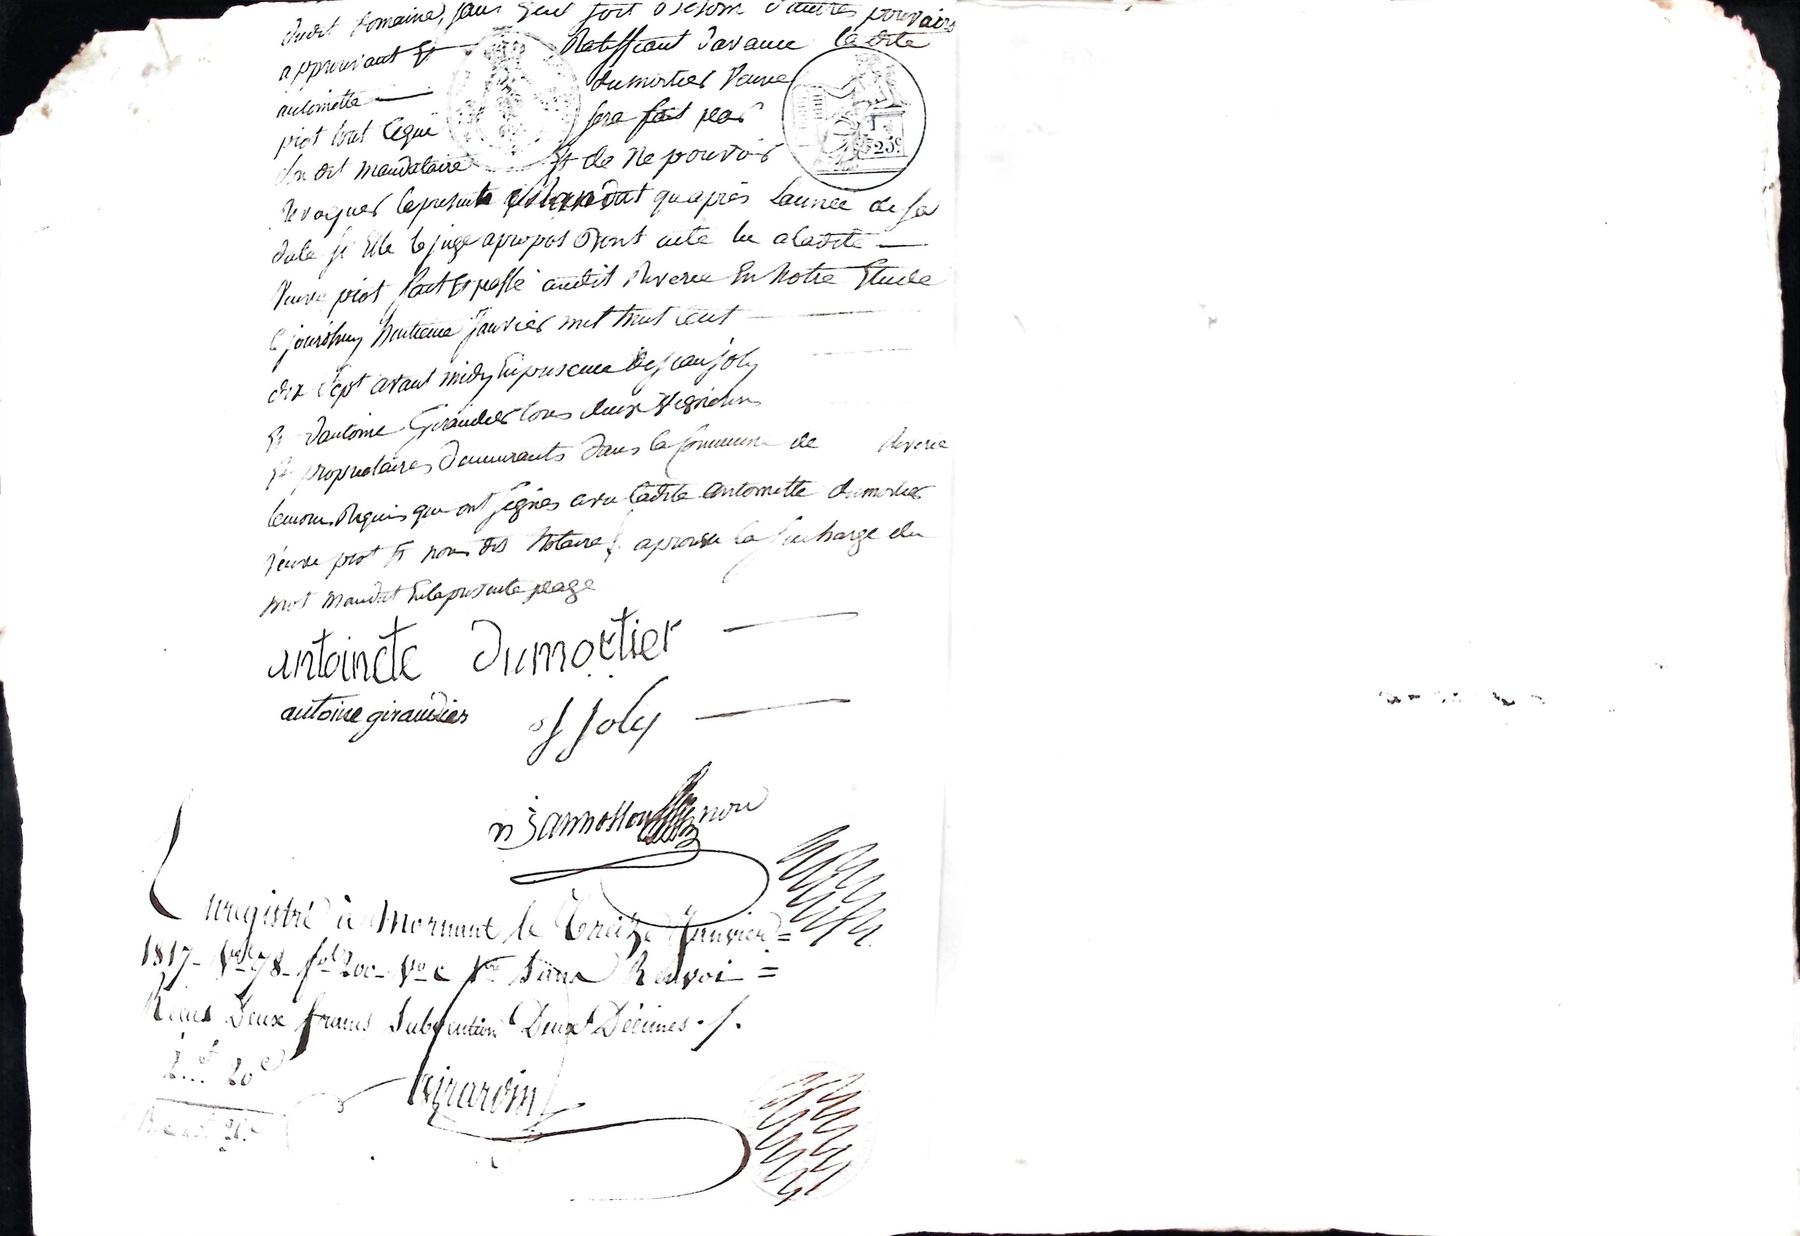 dudit domaine, sans qu'il soit besoin d'autres pouvoirs
approuvant Et Ratiffiant davance la dite
antoinette — dumortier Veuve
piot tout ceque sera fait par
son dit mandataire Et de ne pouvoir
Revoquer le present mandat qu'après lannée de sa
date si Elle le juge apropos Dont acte lu aladite —
Veuve piot fait Et passé audit Riverie En notre Etude
le jourdhuy huitieme janvier mil huit cent —
dix sept avant midy En presence de jean joly
Et d'antoine Giraudier tous deux
Et proprietaires demeurants dans la Commune de Riverie
temoins Requis qui ont signés avec ladite antoinette dumortier
Veuve piot Et nous dit Notaire aprouvé la surcharge du
mot mandat En la presente page
antoinete dumortier —
antoine giraudier jf joly —
Enregistré à Mornant le Treize Janvier =
1817 - vol 78 - fol 200 - Vo C 1re Sans Renvoi =
Recus Deux francs Subvention Deux Décimes ./.
2f 20c
Girardin
25c.